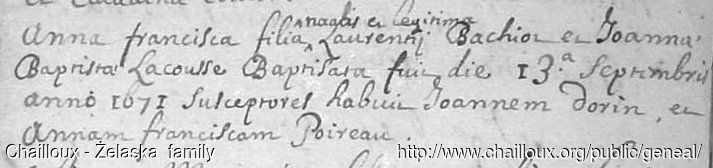 naalis et legitima
Anna francisca filia ^ Laurentij Bachiot et Joanna
Baptista Lacousse Baptisata fuit die 13.a Septembris
anno 1671 Susceptores habuit Joannem Dorin, et
Annam franciscam Poireau.
Chailloux - Żelaska family
http://www.chailloux.org/public/geneal/